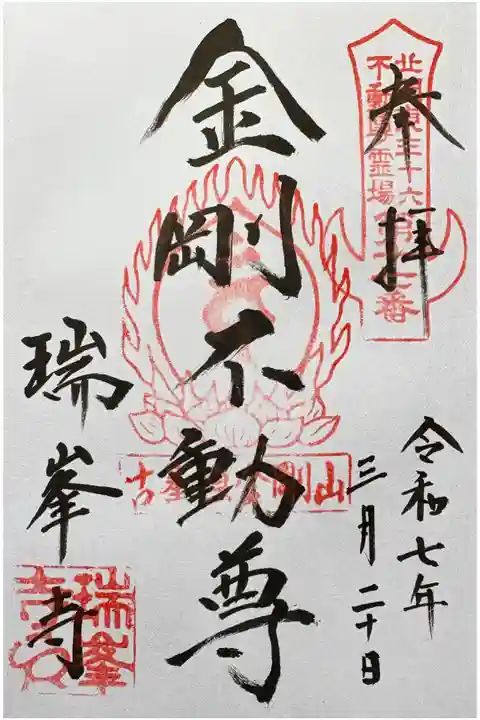 奉拝
北関東三十六
不動尊霊場
番
令和七年
三月二十日
金剛不動尊
金剛山
瑞峯寺
瑞峯